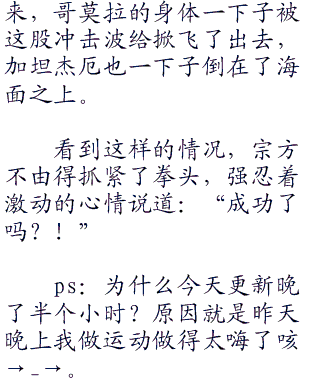 来，哥莫拉的身体一下子被
这股冲击波给掀飞了出去，
加坦杰厄也一下子倒在了海
面之上。
看到这样的情况，宗方
不由得抓紧了拳头，强忍着
激动的心情说道：“成功了
吗？！”
ps：为什么今天更新晚
了半个小时？原因就是昨天
晚上我做运动做得太嗨了咳
→_→。